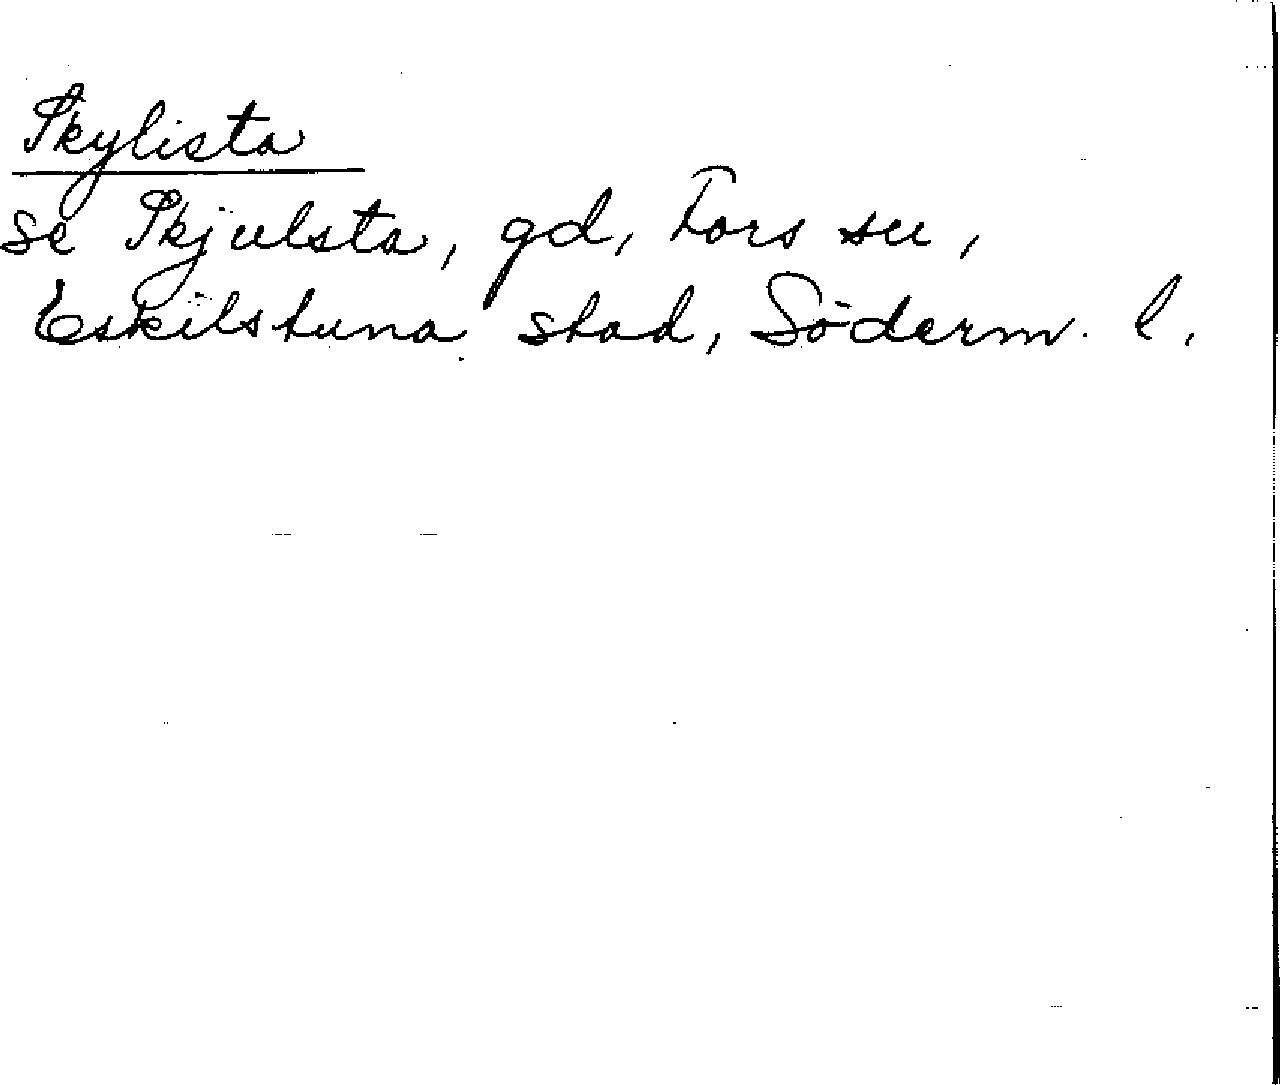 Skylista
se Skjulsta, gd, Fors sn,
Eskilstuna stad, Söderm. l.